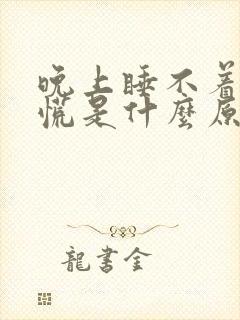 晚上睡不着
慌是什麼原
龍書金